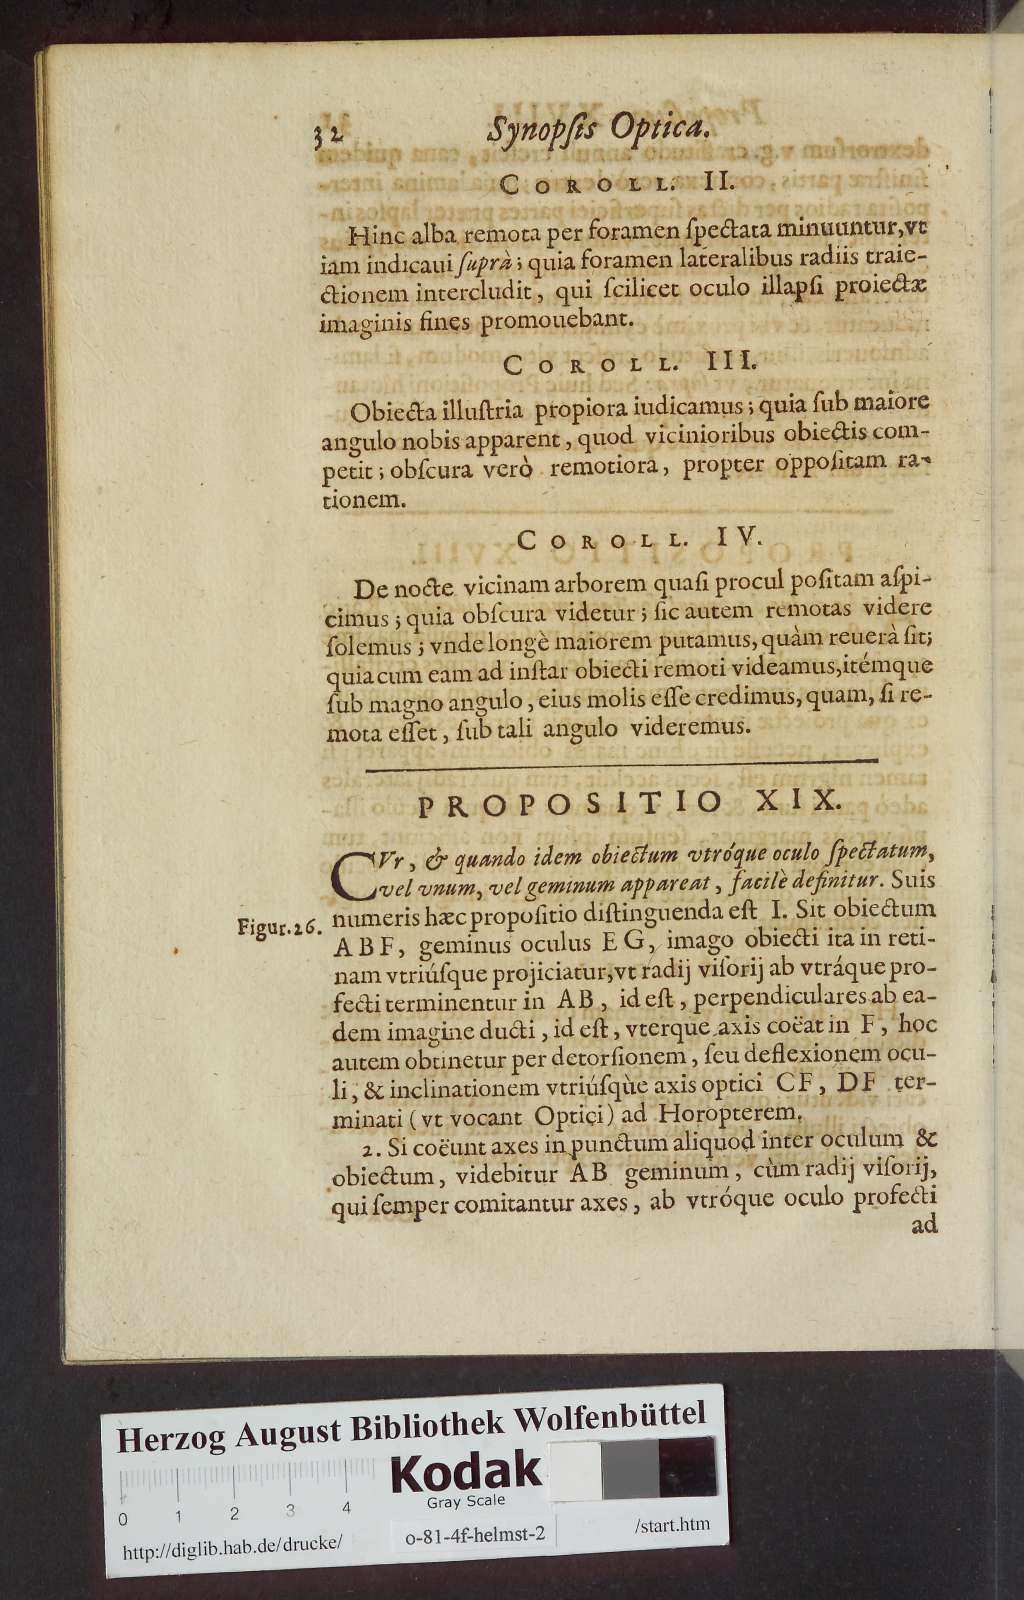 32 Synopſis Optica.
COROLL. II.
Hinc alba remota per foramen ſpectata minuuntur, vt
iam indicaui ſuprà; quia foramen lateralibus radiis traie-
ctionem intercludit, qui ſcilicet oculo illapſi proiectæ
imaginis fines promouebant.
COROLL. III.
Obiecta illuſtria propiora iudicamus; quia ſub maiore
angulo nobis apparent, quod vicinioribus obiectis com-
petit; obſcura verò remotiora, propter oppoſitam ra-
tionem.
COROLL. IV.
De nocte vicinam arborem quaſi procul poſitam aſpi-
cimus; quia obſcura videtur; ſic autem remotas videre
ſolemus; vnde longè maiorem putamus, quàm reuerà ſit;
quia cum eam ad inſtar obiecti remoti videamus, itémque
ſub magno angulo, eius molis eſſe credimus, quam, ſi re-
mota eſſet, ſub tali angulo videremus.
PROPOSITIO XIX.
CVr, & quando idem obiectum vtróque oculo ſpectatum,
vel vnum, vel geminum appareat, facilè definitur. Suis
Figur. 26. numeris hæc propoſitio diſtinguenda eſt I. Sit obiectum
ABF, geminus oculus EG, imago obiecti ita in reti-
nam vtriúſque projiciatur, vt radij viſorij ab vtráque pro-
fecti terminentur in AB, id eſt, perpendiculares ab ea-
dem imagine ducti, id eſt, vterque axis coëat in F, hoc
autem obtinetur per detorſionem, ſeu deflexionem ocu-
li, & inclinationem vtriúſqùe axis optici CF, DF ter-
minati (vt vocant Optici) ad Horopterem.
2. Si coëunt axes in punctum aliquod inter oculum &
obiectum, videbitur AB geminum, cùm radij viſorij,
qui ſemper comitantur axes, ab vtróque oculo profecti
ad
Herzog August Bibliothek Wolfenbüttel
Kodak
Gray Scale
0 1 2 3 4
http://diglib.hab.de/drucke/ o-81-4f-helmst-2 /start.htm